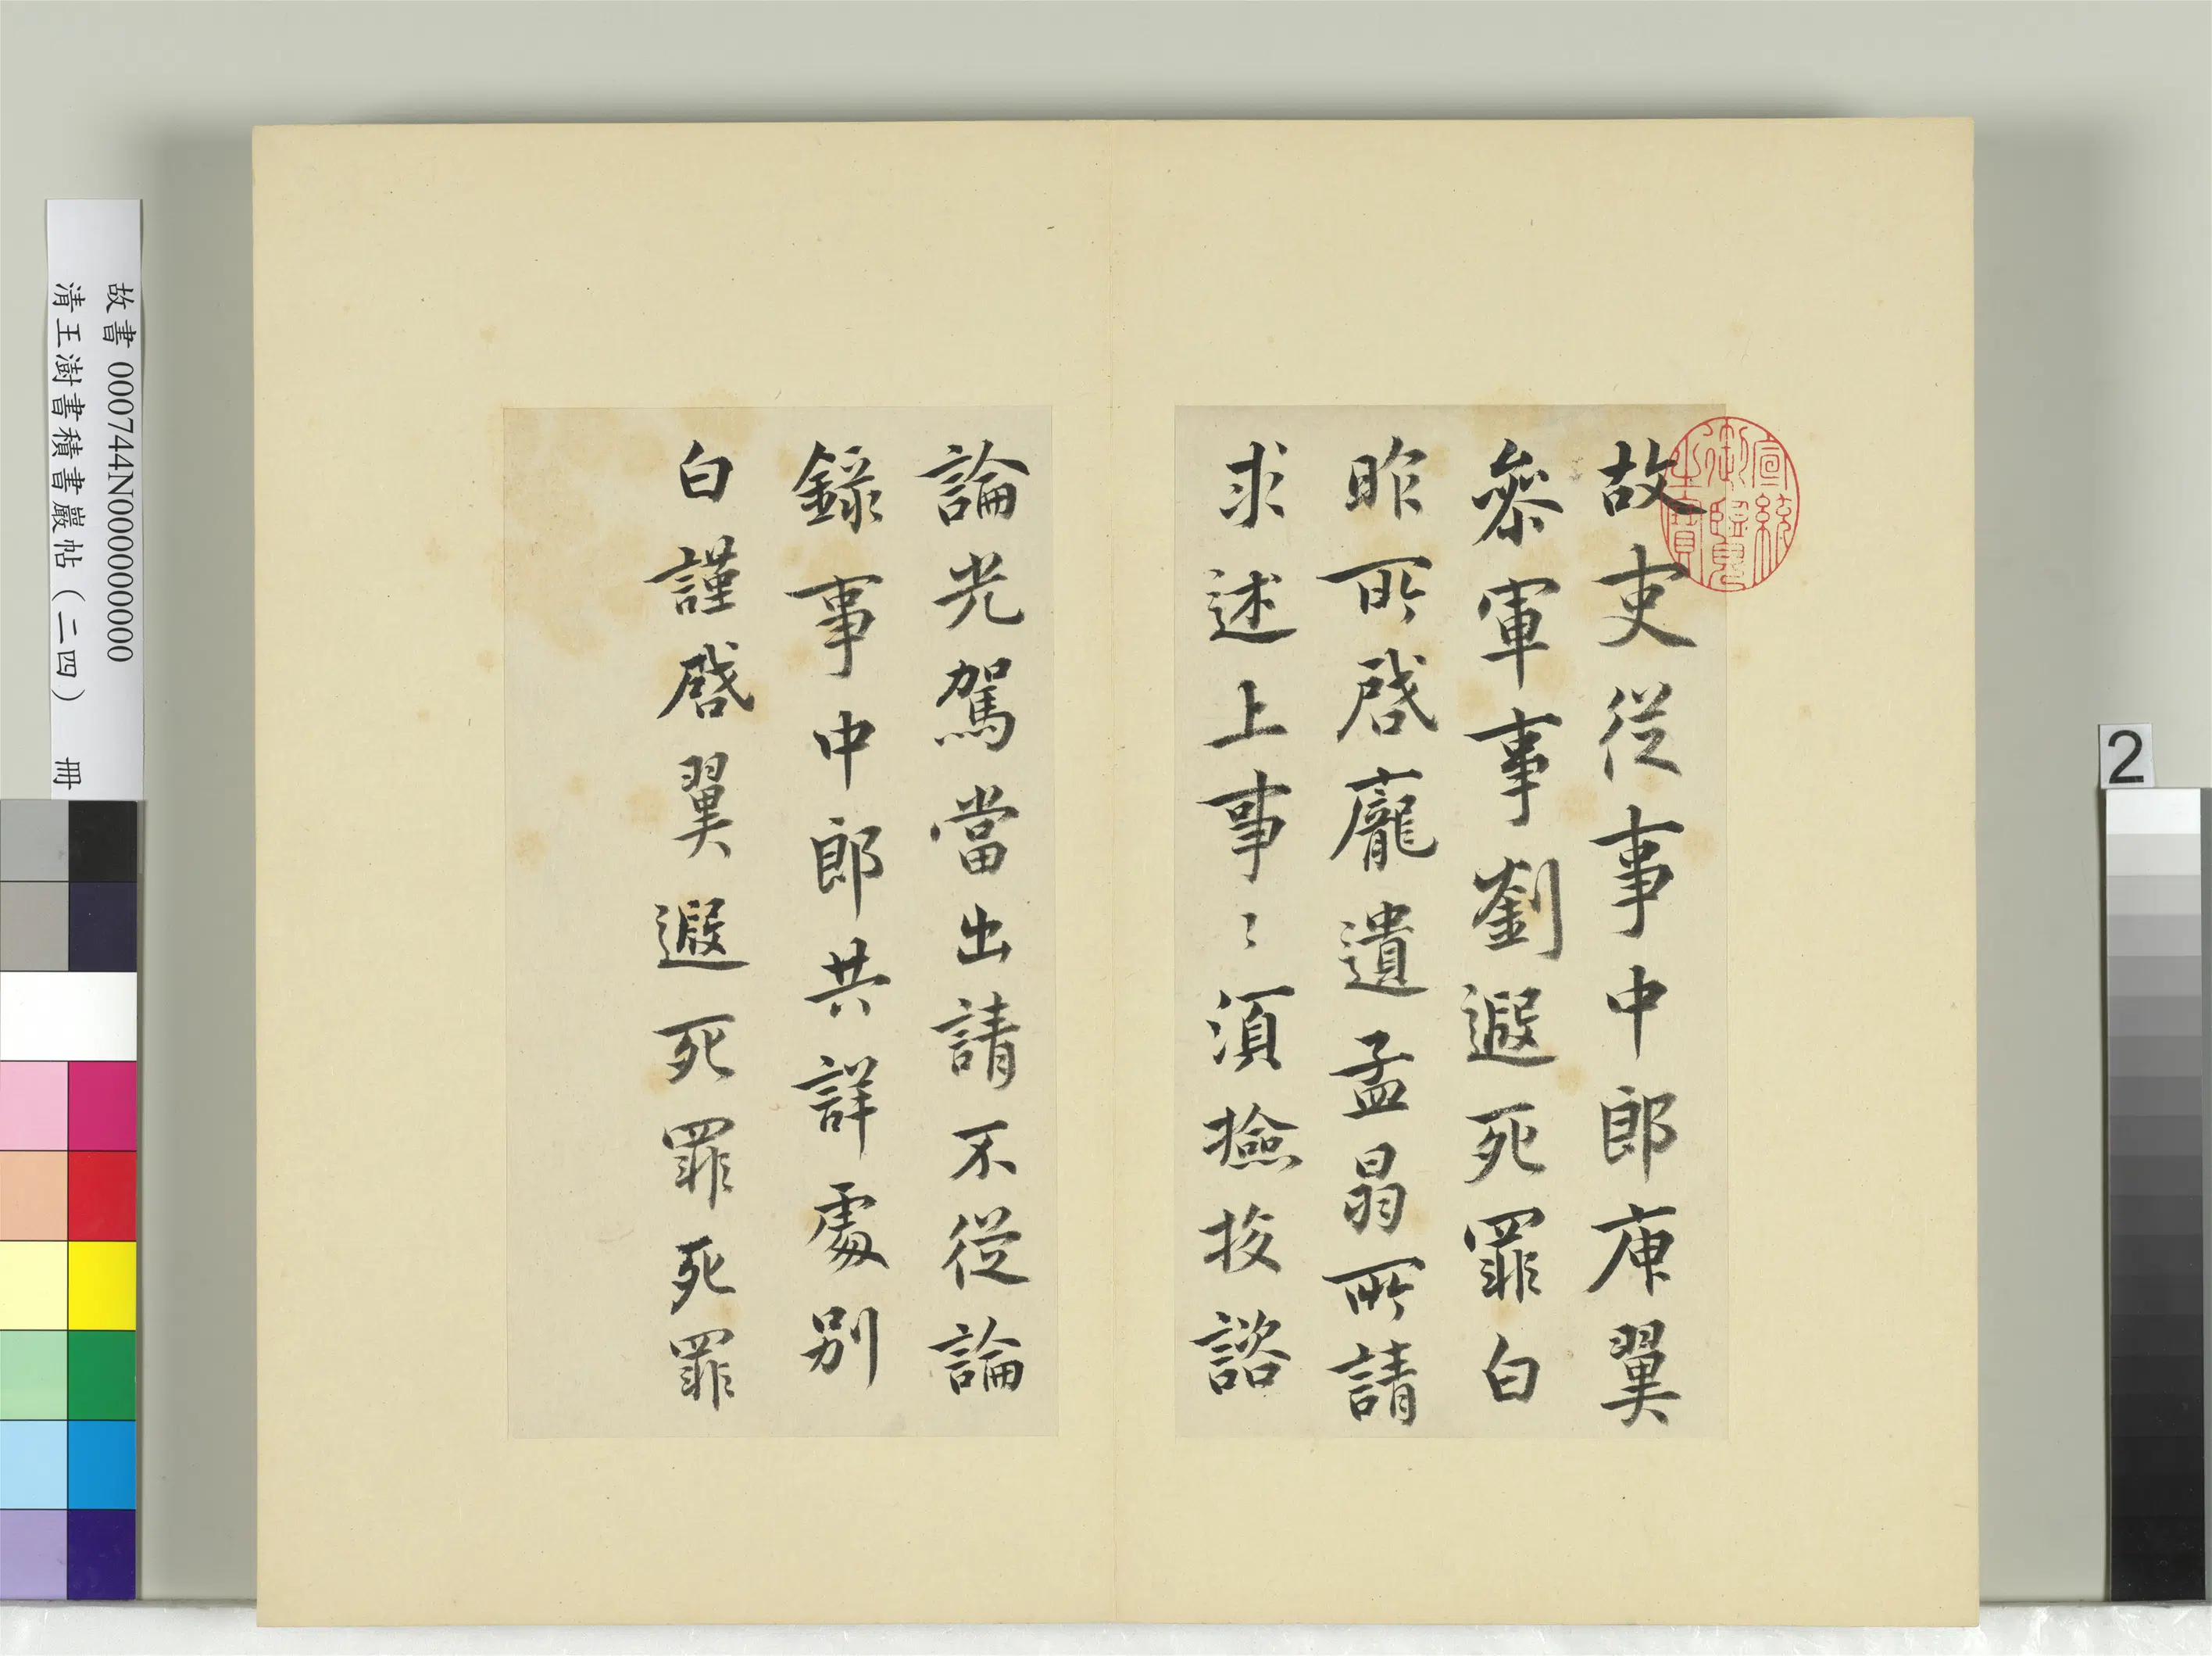 故吏從事中郎庾翼
參軍事劉遐死罪白
昨所啓龐遺孟晁所請
求述上事〻須撿挍諮
論光駕當出請不從論
錄事中郎共詳處別
白謹啓翼遐死罪死罪
宣統
御覽
之寶
故書 000744N000000000
清王澍書積書巖帖（二四） 冊
2